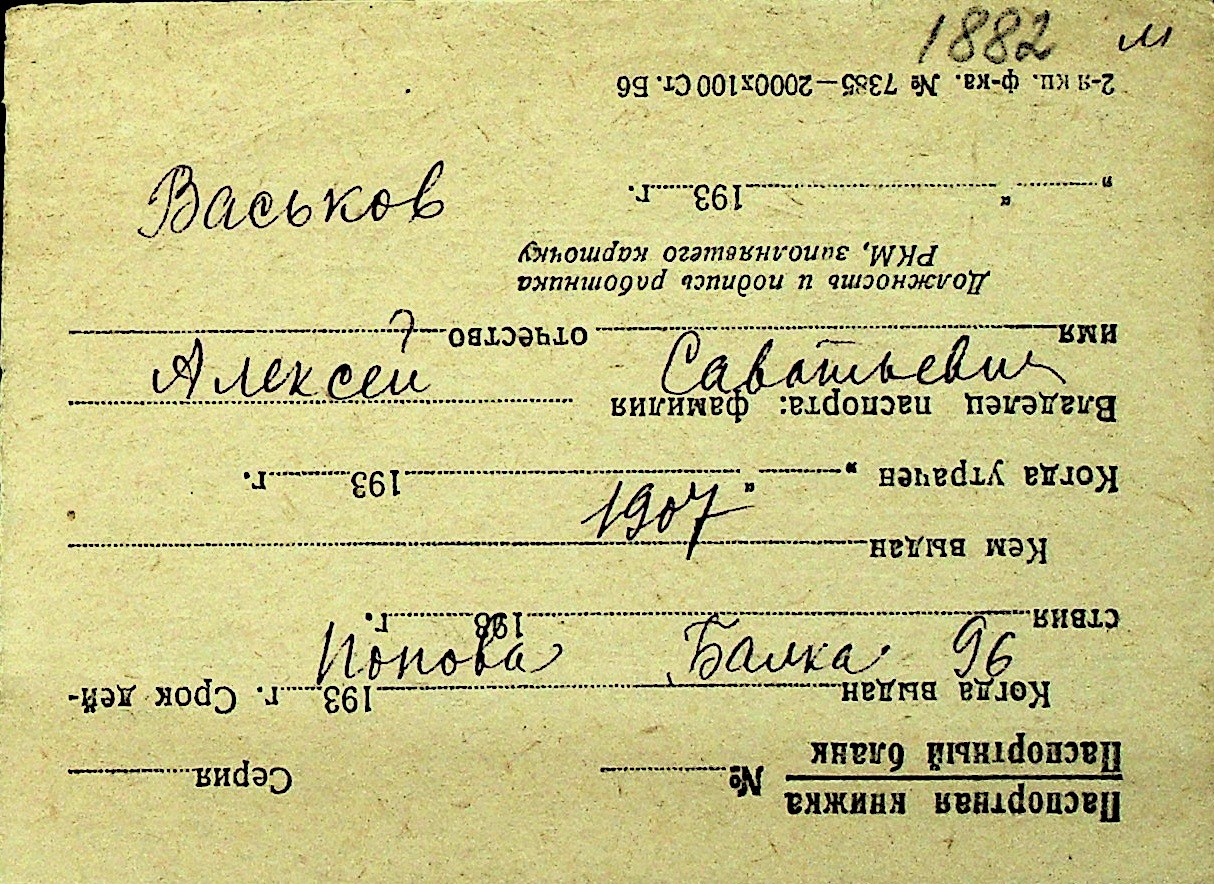 1882 м
Васьков
Алексей Саватьевич
1907
Попова Балка 96
Паспортная книжка
Паспортный бланк № Серия
Когда выдан 193 г. Срок дей-
ствия 193 г.
Кем выдан
Когда утрачен „ “ 193 г.
Владелец паспорта: фамилия
имя отчество
Должность и подпись работника
РКМ, заполнявшего карточку
„ “ 193 г.
2-я кп. ф-ка. № 7385—2000х100 Ст. Б6